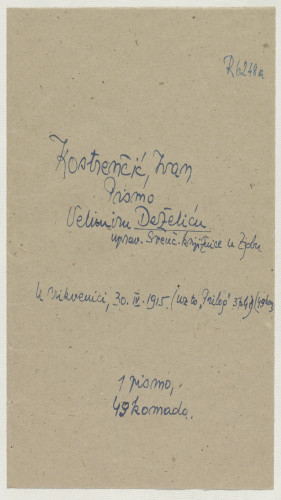 R6248a
Kostrenčić, Ivan
Pismo
Velimiru Deželiću
uprav. Sveuč. knjižnice u Zgbu
U Crikvenici, 30. IV. 1915. (uz to "Prilog"
1 pismo,
49 komada.